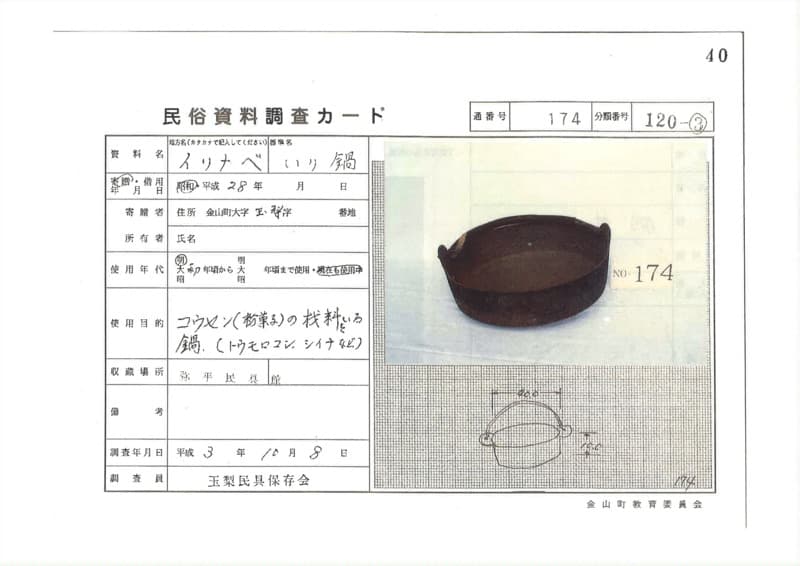 40
民俗資料調査カード
通番号 174 分類番号 120-③
資料名 地方名(カタカナで記入してください) 標準名
イリナベ いり鍋
寄贈・借用 年月日 昭和・平成 28年 月 日
寄贈者 住所 金山町大字 玉梨 字 番地
所有者 氏名
使用年代 明 大 昭 初 年頃から 明 大 昭 年頃まで使用・現在も使用中
使用目的 コウセン(粉菓子)の材料をいる
鍋.(トウモロコシ、シイナなど)
収蔵場所 弥平民具館
備考
調査年月日 平成 3 年 10 月 8 日
調査員 玉梨民具保存会
NO. 174
40.0
10.0
174
金山町教育委員会